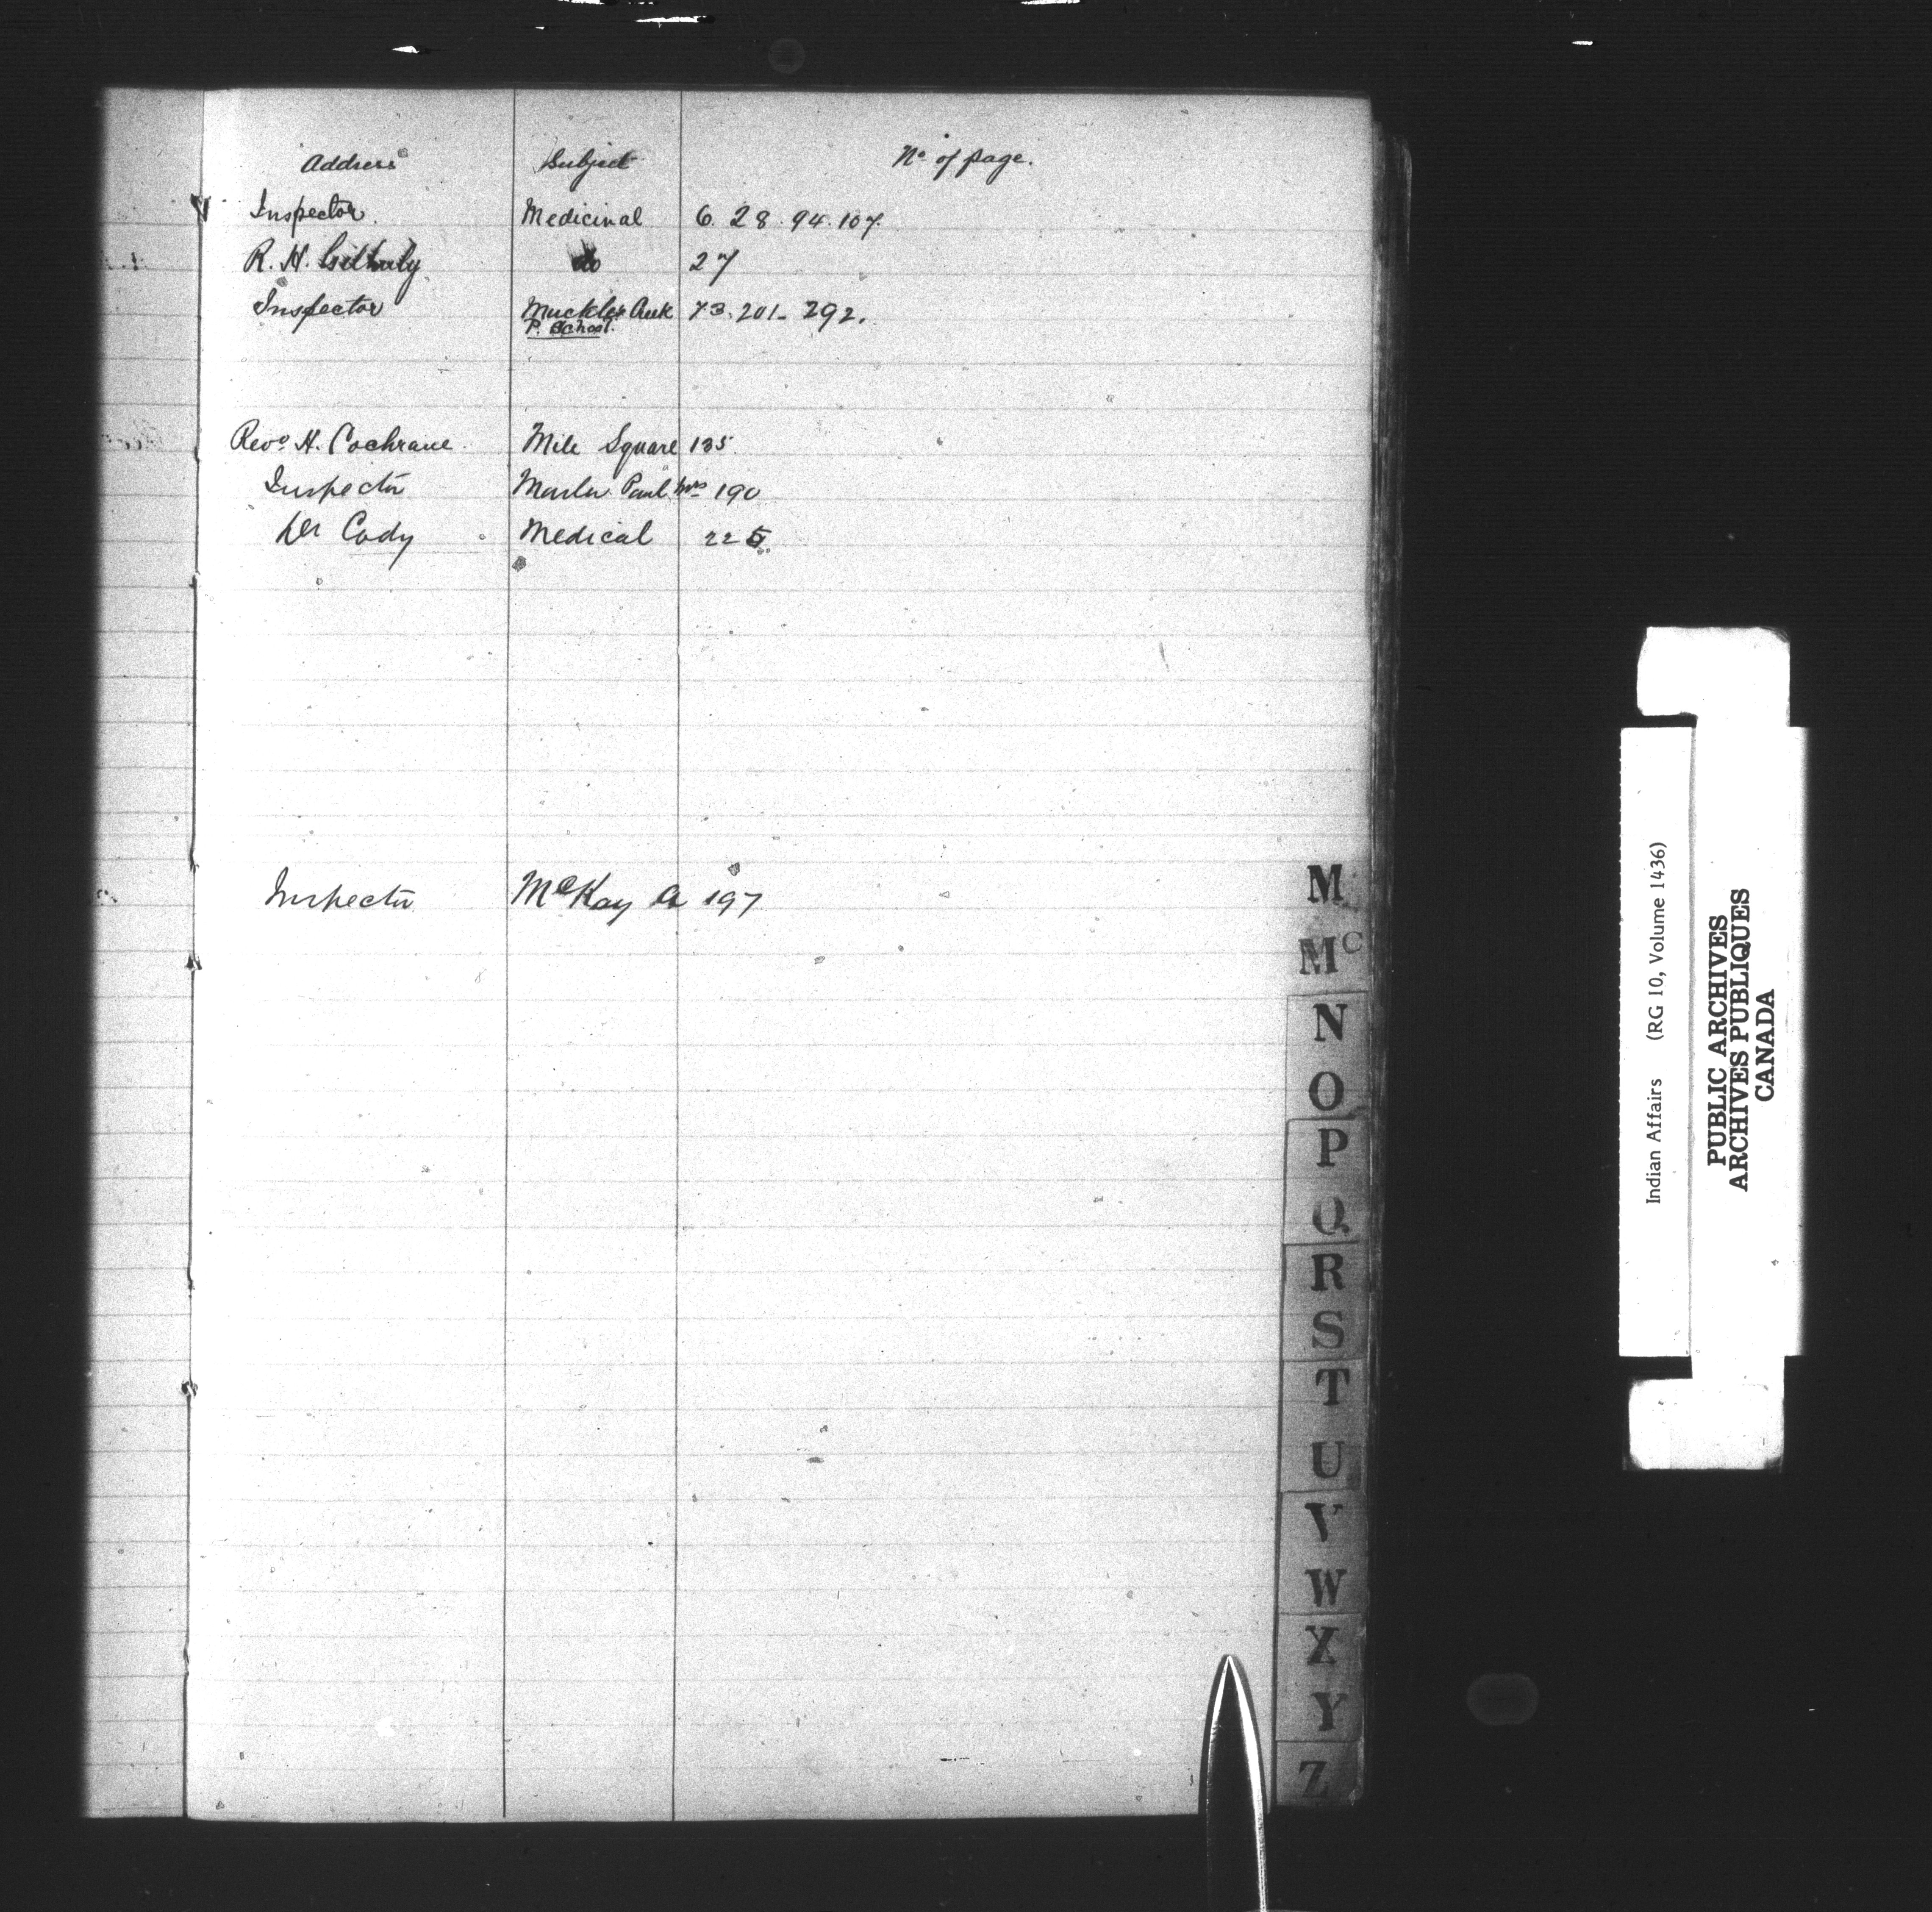 Address Subject No of page.
Inspector. Medicinal 6. 28. 94. 107.
R. H. do 27
Inspector Muckles Creek 73. 201 - 292.
P. School.
Revd H. Cochrane Mile Square 135
Inspector Paul Mrs 190
Dr Cody Medical 225
Inspector McKay A 197
M
Mc
N
O
P
Q
R
S
T
U
V
W
X
Y
Z
Indian Affairs (RG 10, Volume 1436)
PUBLIC ARCHIVES
ARCHIVES PUBLIQUES
CANADA